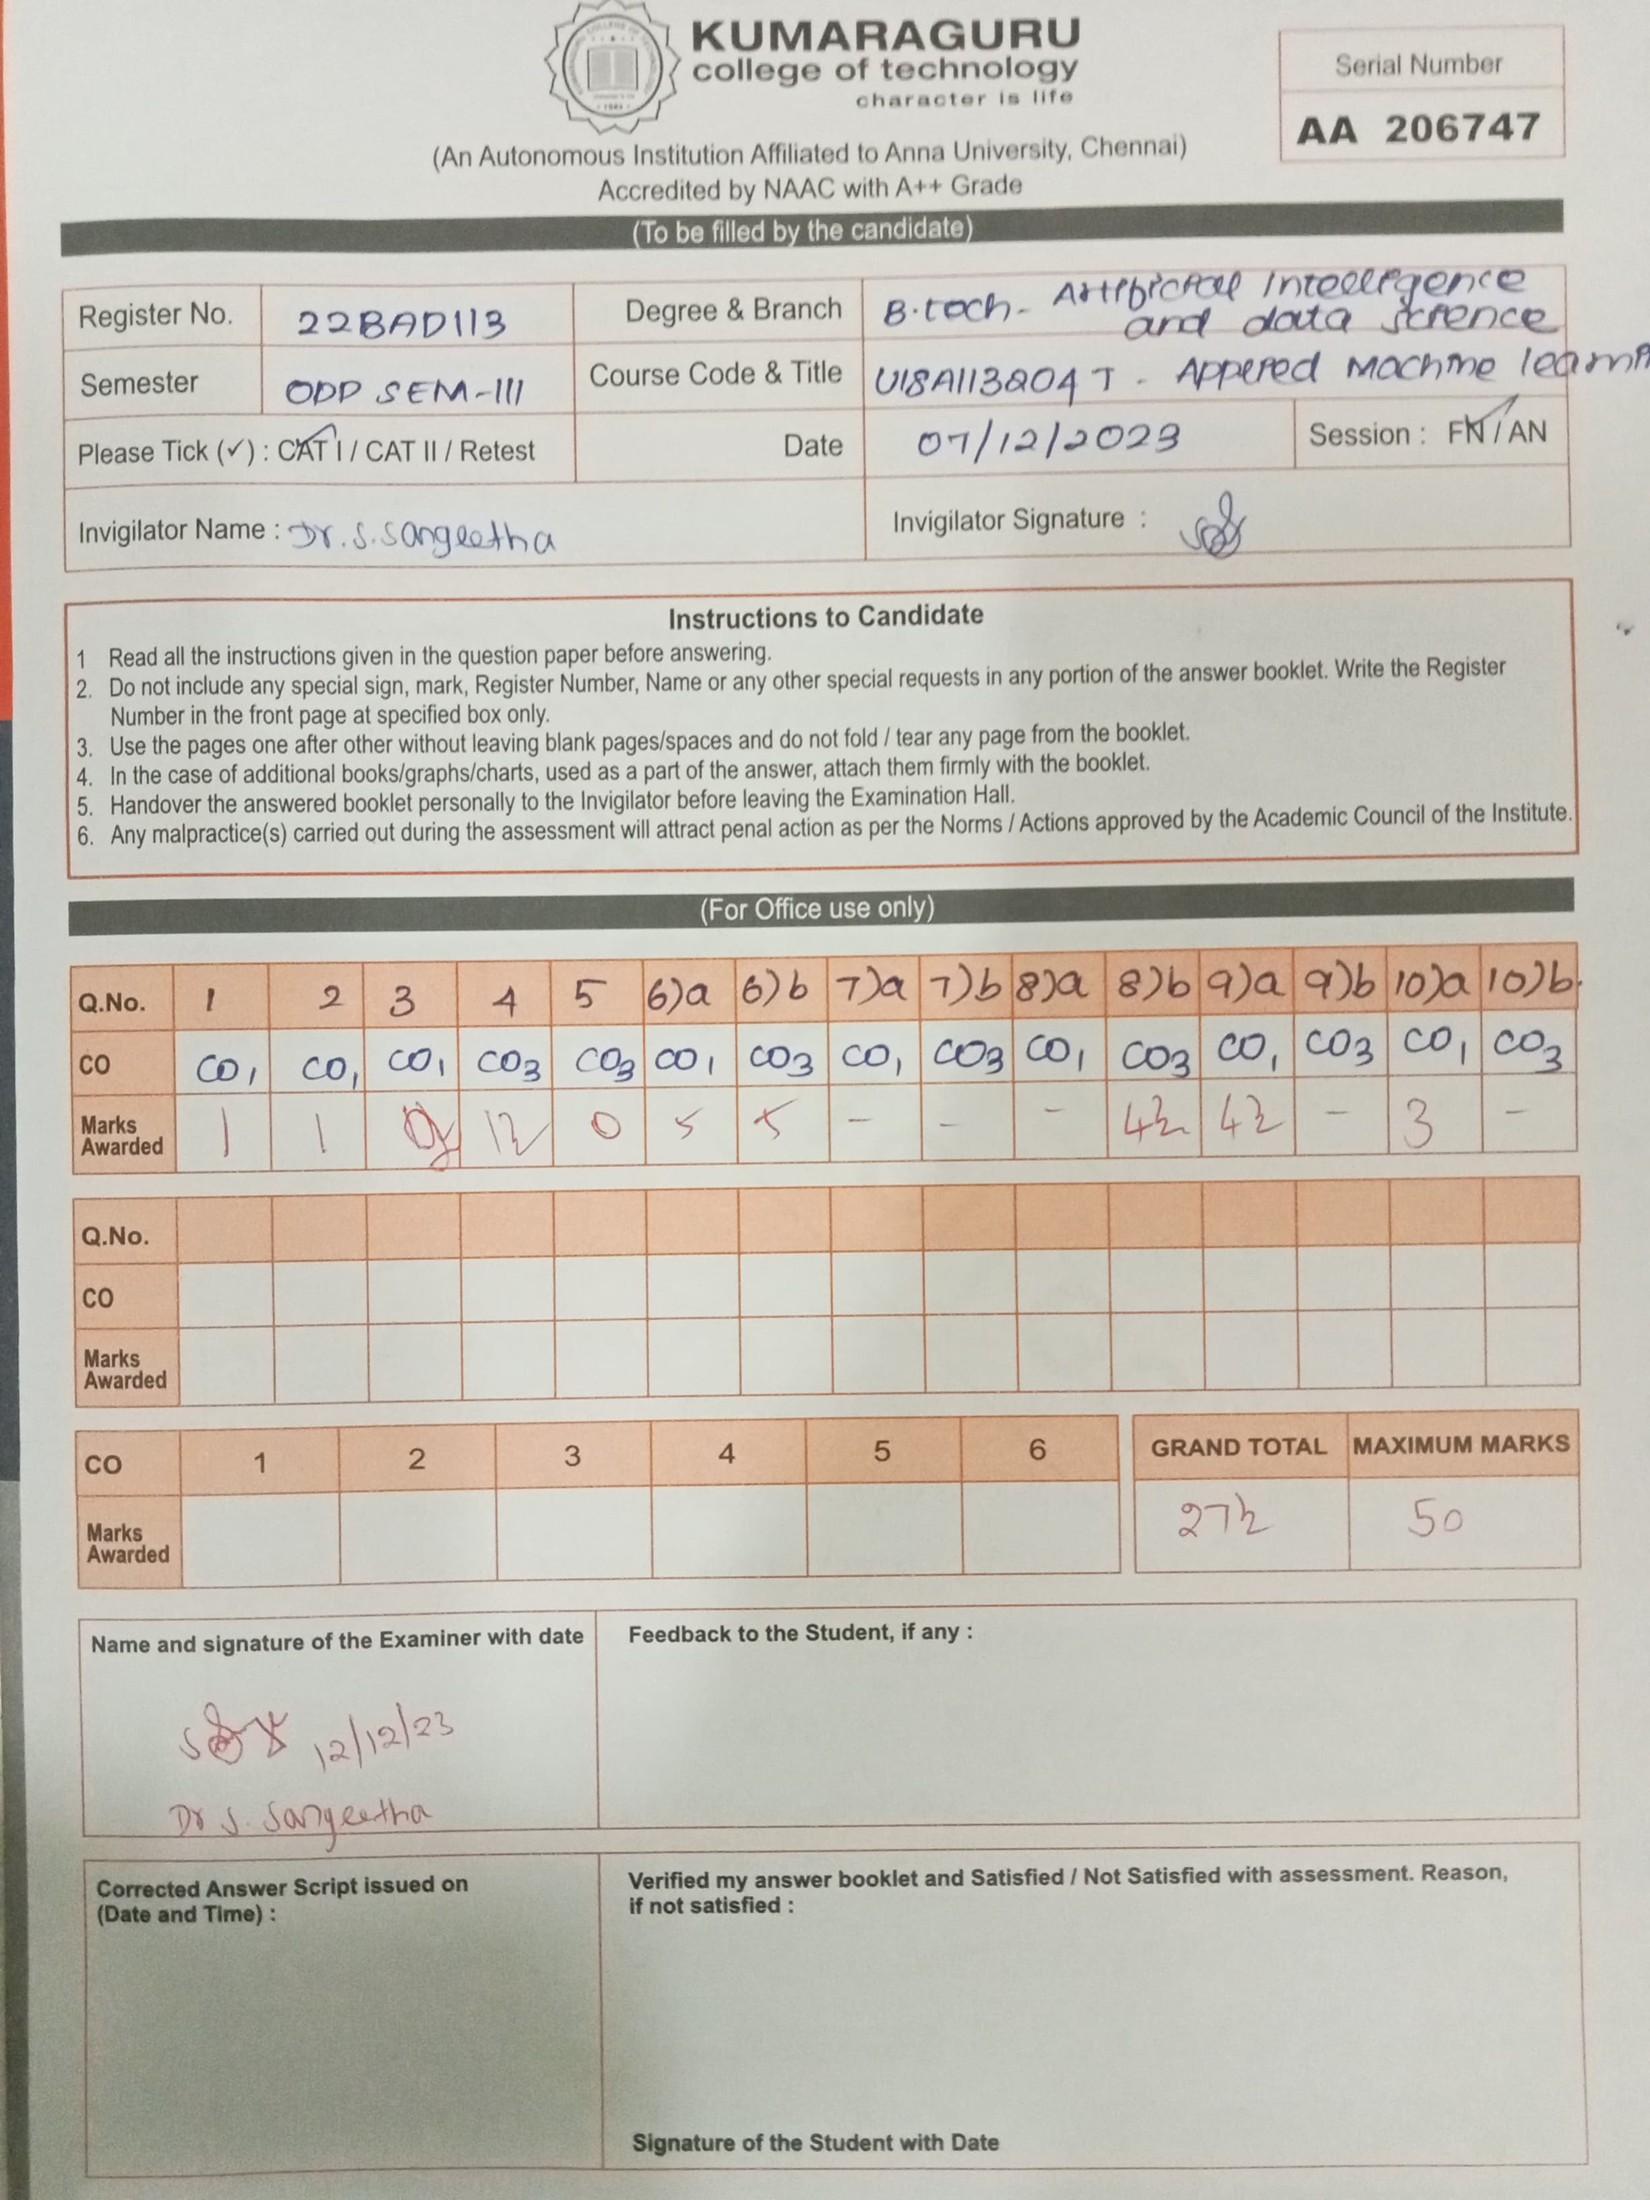 KUMARAGURU
college of technology
character is life
Serial Number
AA 206747
(An Autonomous Institution Affiliated to Anna University, Chennai)
Accredited by NAAC with A++ Grade
(To be filled by the candidate)
Register No. 22BAD113 Degree & Branch B.tech- Artificial Intelligence and data science
Semester ODD SEM-III Course Code & Title U18AII3204T - Applied Machine learni
Please Tick (✓) : CAT I / CAT II / Retest Date 07/12/2023 Session : FN / AN
Invigilator Name : Dr. S. Sangeetha Invigilator Signature :
Instructions to Candidate
1 Read all the instructions given in the question paper before answering.
2. Do not include any special sign, mark, Register Number, Name or any other special requests in any portion of the answer booklet. Write the Register
Number in the front page at specified box only.
3. Use the pages one after other without leaving blank pages/spaces and do not fold / tear any page from the booklet.
4. In the case of additional books/graphs/charts, used as a part of the answer, attach them firmly with the booklet.
5. Handover the answered booklet personally to the Invigilator before leaving the Examination Hall.
6. Any malpractice(s) carried out during the assessment will attract penal action as per the Norms / Actions approved by the Academic Council of the Institute.
(For Office use only)
Q.No. 1 2 3 4 5 6)a 6)b 7)a 7)b 8)a 8)b 9)a 9)b 10)a 10)b.
CO CO1 CO1 CO1 CO3 CO3 CO1 CO3 CO1 CO3 CO1 CO3 CO1 CO3 CO1 CO3
Marks Awarded 1 1 1½ 0 5 5 - - - 4½ 4½ - 3 -
Q.No.
CO
Marks Awarded
CO 1 2 3 4 5 6 GRAND TOTAL MAXIMUM MARKS
Marks Awarded 27½ 50
Name and signature of the Examiner with date
12/12/23
Dr S. Sangeetha
Feedback to the Student, if any :
Corrected Answer Script issued on
(Date and Time) :
Verified my answer booklet and Satisfied / Not Satisfied with assessment. Reason,
if not satisfied :
Signature of the Student with Date